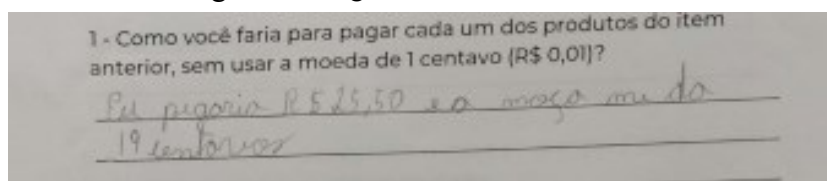 1 - Como você faria para pagar cada um dos produtos do item
anterior, sem usar a moeda de 1 centavo (R$ 0,01)?
Eu pegaria R$ 25,50 e a moça me da
19 centavos